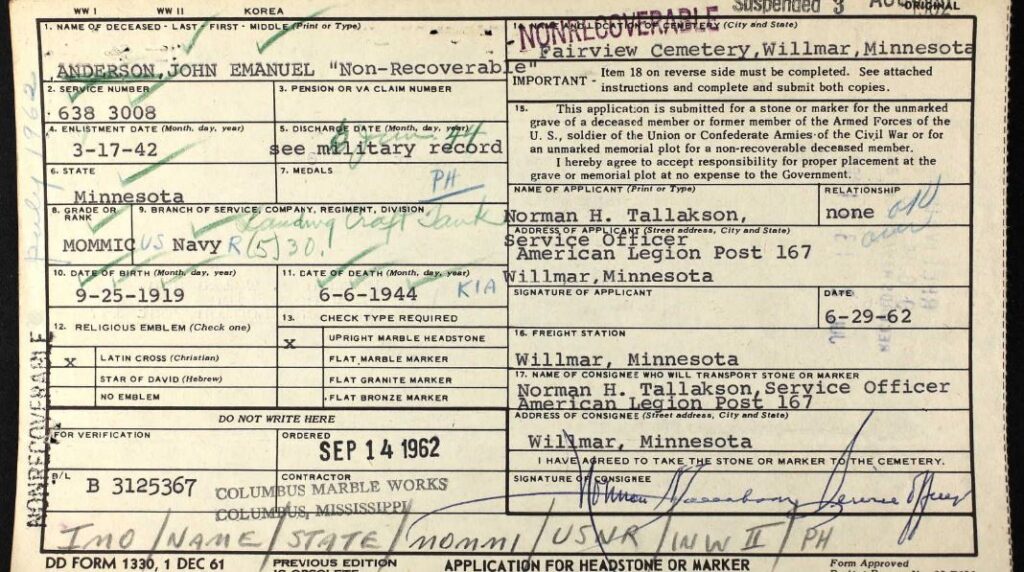 WW I WW II KOREA
Suspended 3 ORIGINAL
NONRECOVERABLE
1. NAME OF DECEASED - LAST - FIRST - MIDDLE (Print or Type)
ANDERSON, JOHN EMANUEL "Non-Recoverable"
2. SERVICE NUMBER
638 3008
3. PENSION OR VA CLAIM NUMBER
4. ENLISTMENT DATE (Month, day, year)
3-17-42
5. DISCHARGE DATE (Month, day, year)
see military record
6. STATE
Minnesota
7. MEDALS
PH
8. GRADE OR RANK
MOMMIC
9. BRANCH OF SERVICE, COMPANY, REGIMENT, DIVISION
US Navy R (5) 30.
Landing Craft Tank
10. DATE OF BIRTH (Month, day, year)
9-25-1919
11. DATE OF DEATH (Month, day, year)
6-6-1944 KIA
12. RELIGIOUS EMBLEM (Check one)
X LATIN CROSS (Christian)
STAR OF DAVID (Hebrew)
NO EMBLEM
13. CHECK TYPE REQUIRED
X UPRIGHT MARBLE HEADSTONE
FLAT MARBLE MARKER
FLAT GRANITE MARKER
FLAT BRONZE MARKER
DO NOT WRITE HERE
FOR VERIFICATION
ORDERED
SEP 14 1962
B/L B 3125367
CONTRACTOR
COLUMBUS MARBLE WORKS
COLUMBUS, MISSISSIPPI
14. NAME AND LOCATION OF CEMETERY (City and State)
Fairview Cemetery, Willmar, Minnesota
IMPORTANT - Item 18 on reverse side must be completed. See attached
instructions and complete and submit both copies.
15. This application is submitted for a stone or marker for the unmarked
grave of a deceased member or former member of the Armed Forces of the
U. S., soldier of the Union or Confederate Armies of the Civil War or for
an unmarked memorial plot for a non-recoverable deceased member.
I hereby agree to accept responsibility for proper placement at the
grave or memorial plot at no expense to the Government.
NAME OF APPLICANT (Print or Type)
Norman H. Tallakson,
RELATIONSHIP
none
ADDRESS OF APPLICANT (Street address, City and State)
Service Officer
American Legion Post 167
Willmar, Minnesota
SIGNATURE OF APPLICANT
DATE
6-29-62
16. FREIGHT STATION
Willmar, Minnesota
17. NAME OF CONSIGNEE WHO WILL TRANSPORT STONE OR MARKER
Norman H. Tallakson, Service Officer
American Legion Post 167
ADDRESS OF CONSIGNEE (Street address, City and State)
Willmar, Minnesota
I HAVE AGREED TO TAKE THE STONE OR MARKER TO THE CEMETERY.
SIGNATURE OF CONSIGNEE
Norman Tallakson Service Officer
IMO / NAME / STATE / MOMM1 / USNR / WW II / PH
DD FORM 1330, 1 DEC 61
PREVIOUS EDITION
IS OBSOLETE
APPLICATION FOR HEADSTONE OR MARKER
Form Approved
July 1962
NONRECOVERABLE